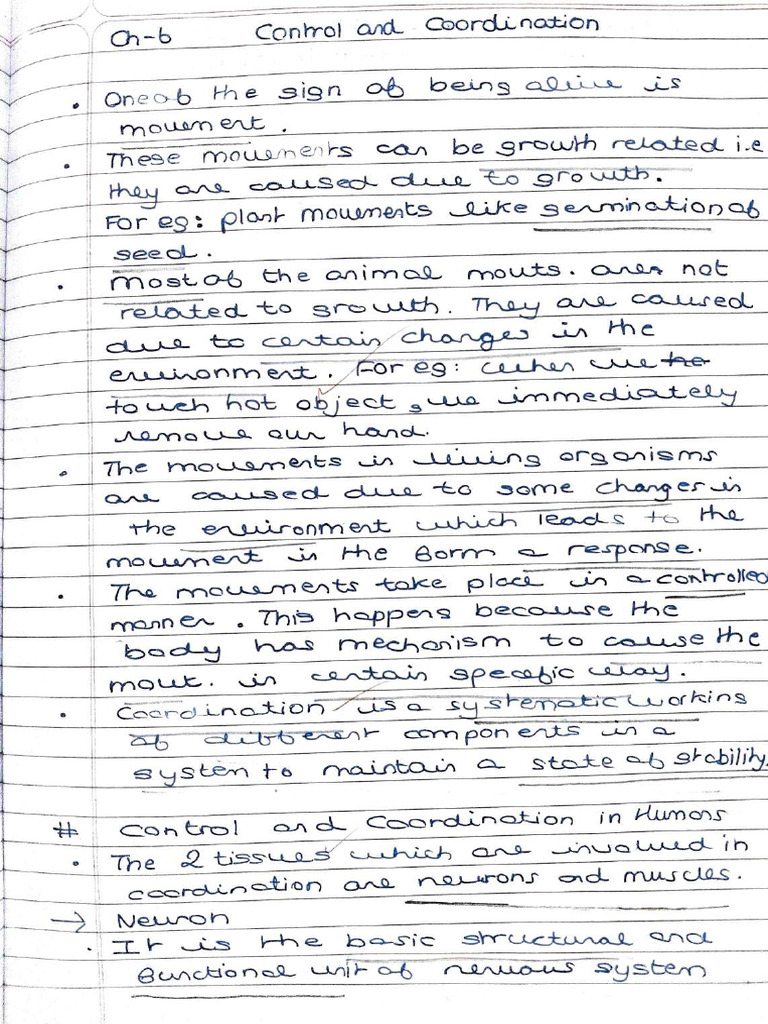 Ch-6 Control and Coordination
• One of the sign of being alive is
movement.
• These movements can be growth related i.e
they are caused due to growth.
For eg: plant movements like germination of
seed.
• Most of the animal movts. are not
related to growth. They are caused
due to certain changes in the
environment. For eg: when we he
touch hot object, we immediately
remove our hand.
• The movements in living organisms
are caused due to some changes in
the environment which leads to the
movement in the form a response.
• The movements take place in a controlled
manner. This happens because the
body has mechanism to cause the
movt. in certain specific way.
• Coordination is a systematic working
of different components in a
system to maintain a state of stability.
# Control and Coordination in Humans
• The 2 tissues which are involved in
coordination are neurons and muscles.
→ Neuron
• It is the basic structural and
functional unit of nervous system